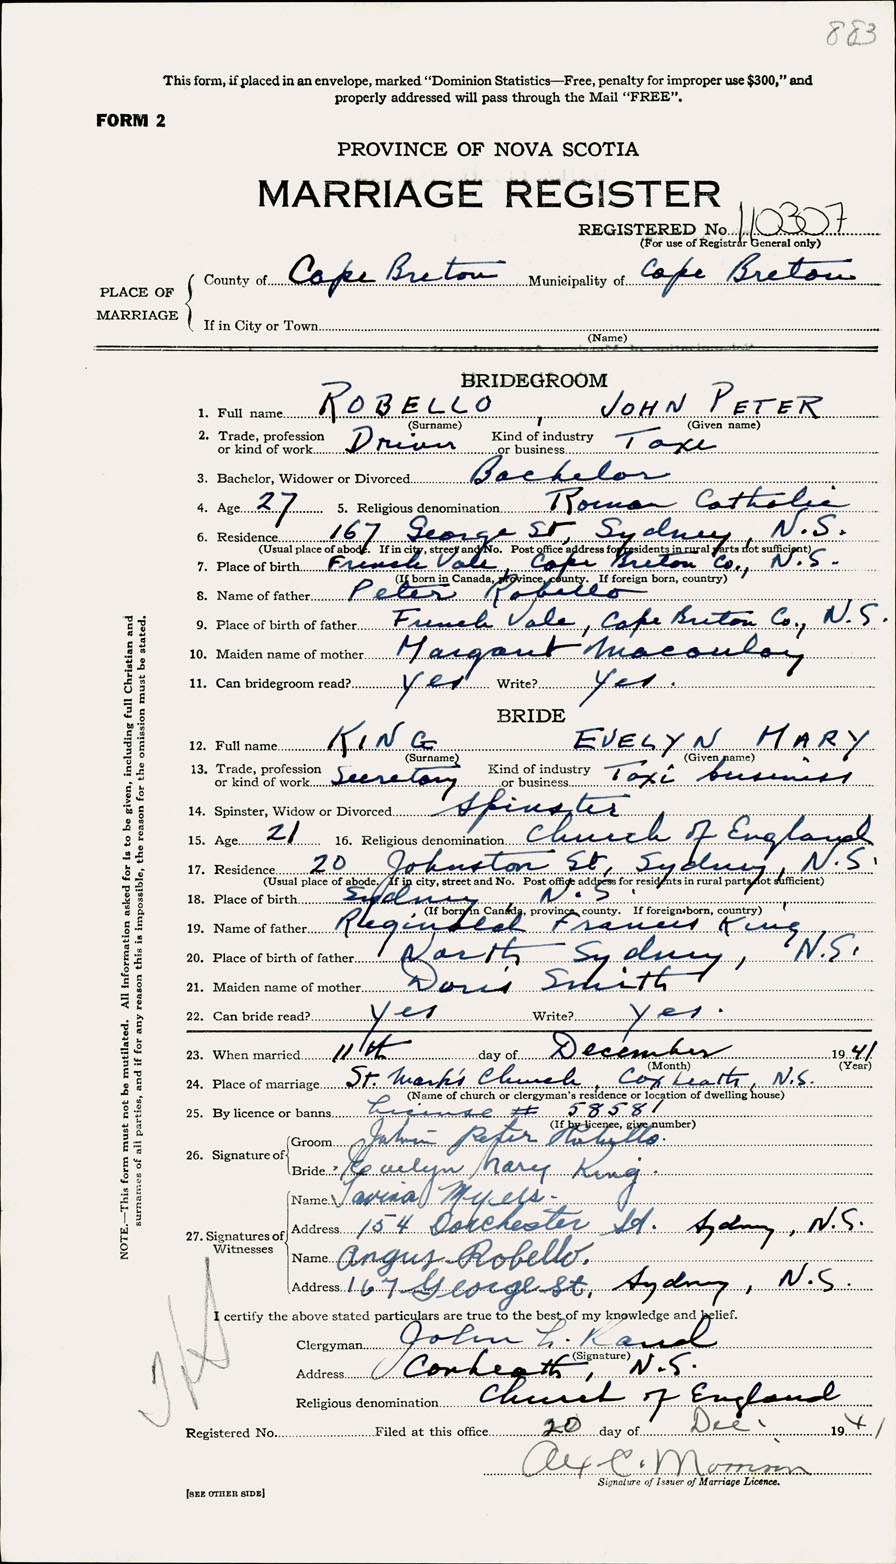 883
This form, if placed in an envelope, marked “Dominion Statistics—Free, penalty for improper use $300,” and
properly addressed will pass through the Mail “FREE”.
FORM 2
PROVINCE OF NOVA SCOTIA
MARRIAGE REGISTER
REGISTERED No. 110307
(For use of Registrar General only)
PLACE OF MARRIAGE
County of Cape Breton Municipality of Cape Breton
If in City or Town
(Name)
BRIDEGROOM
1. Full name ROBELLO, JOHN PETER
(Surname) (Given name)
2. Trade, profession or kind of work Driver Kind of industry or business Taxi
3. Bachelor, Widower or Divorced Bachelor
4. Age 27 5. Religious denomination Roman Catholic
6. Residence 167 George St, Sydney, N.S.
(Usual place of abode. If in city, street and No. Post office address for residents in rural parts not sufficient)
7. Place of birth French Vale, Cape Breton Co., N.S.
(If born in Canada, province, county. If foreign born, country)
8. Name of father Peter Robello
9. Place of birth of father French Vale, Cape Breton Co., N.S.
10. Maiden name of mother Margaret Macaulay
11. Can bridegroom read? Yes Write? Yes.
BRIDE
12. Full name KING EVELYN MARY
(Surname) (Given name)
13. Trade, profession or kind of work Secretary Kind of industry or business Taxi business
14. Spinster, Widow or Divorced Spinster
15. Age 21 16. Religious denomination Church of England
17. Residence 20 Johnston St, Sydney, N.S.
(Usual place of abode. If in city, street and No. Post office address for residents in rural parts not sufficient)
18. Place of birth Sydney N.S.
(If born in Canada, province, county. If foreign born, country)
19. Name of father Reginald Francis King
20. Place of birth of father North Sydney, N.S.
21. Maiden name of mother Doris Smith
22. Can bride read? Yes Write? Yes.
23. When married 11th day of December 1941
(Month) (Year)
24. Place of marriage St. Mark's Church, Coxheath, N.S.
(Name of church or clergyman's residence or location of dwelling house)
25. By licence or banns License # 58581
(If by licence, give number)
26. Signature of
Groom John Peter Robello.
Bride Evelyn Mary King.
27. Signatures of Witnesses
Name Lavina Myers.
Address 154 Dorchester St. Sydney, N.S.
Name Angus Robello.
Address 167 George St, Sydney, N.S.
I certify the above stated particulars are true to the best of my knowledge and belief.
Clergyman John L. Rand
(Signature)
Address Coxheath, N.S.
Religious denomination Church of England
Registered No. Filed at this office 20 day of Dec. 1941
Alex C. Morrison
Signature of Issuer of Marriage Licence.
[SEE OTHER SIDE]
NOTE.—This form must not be mutilated. All information asked for is to be given, including full Christian and
surnames of all parties, and if for any reason this is impossible, the reason for the omission must be stated.